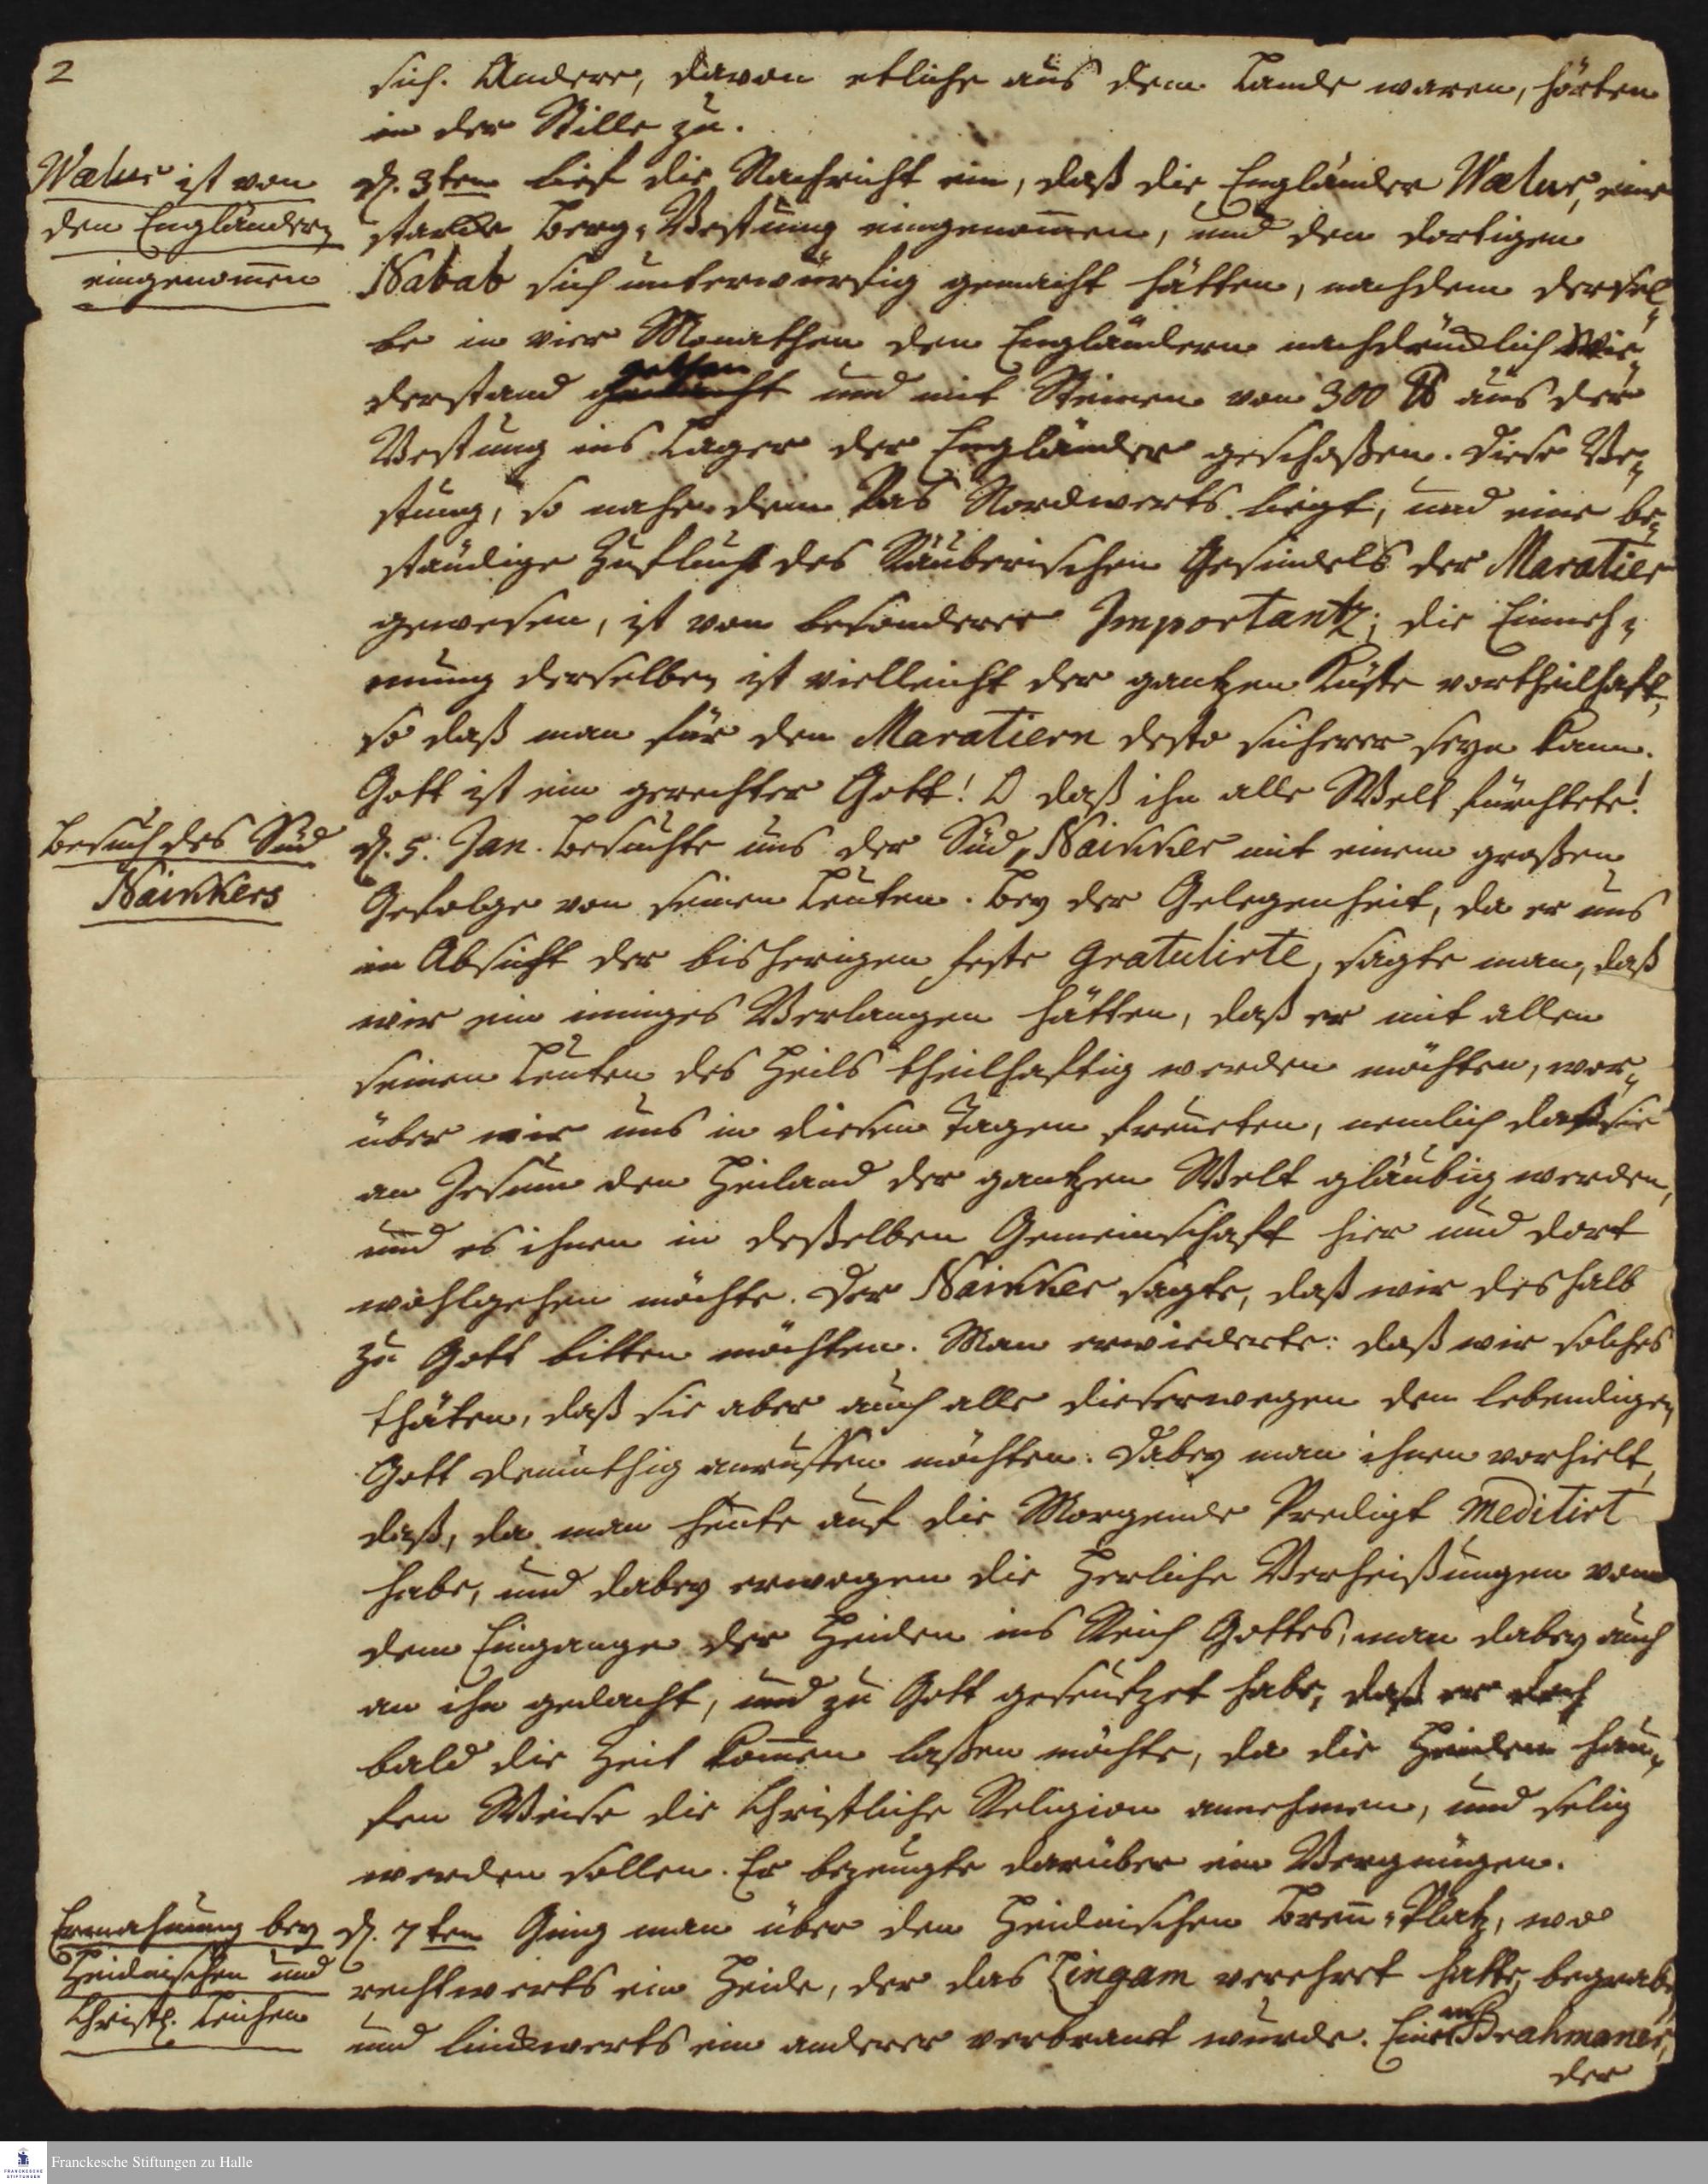 2
sich. Andere, davon etliche aus dem Lande waren, hörten
in der Stille zu.
Welur ist von
den Engländern
eingenom̅en
d. 3ten lief die Nachricht ein, daß die Engländer Welur, eine
starcke Berg-Vestung eingenom̅en, und den dortigen
Nabab sich unterwürfig gemacht hätten, nachdem dersel-
be in vier Monathen den Engländern nachdrücklich Wie-
derstand gethan und mit Steinen von 300 ℔ aus der
Vestung ins Lager der Engländer geschoßen. Diese Ve-
stung, so nahe dem Pas Nordwerts liegt, und eine be-
ständige Zuflucht des Räuberischen Gesindels der Maratier
gewesen, ist von besonderer Importantz; die Einneh-
mung derselben ist vielleicht der gantzen Küste vortheilhaft,
so daß man für den Maratiern desto sicherer seyn kann.
Gott ist ein gerechter Gott! O daß ihn alle Welt fürchtete!
Besuch des Süd
Naikkers
d. 5. Jan. besuchte uns der Süd-Naikker mit einem großen
Gefolge von seinen Leuten. Bey der Gelegenheit, da er uns
in Absicht der bisherigen Feste gratulirte, sagte man, daß
wir ein inniges Verlangen hätten, daß er mit allen
seinen Leuten des Heils theilhaftig werden möchten, wor-
über wir uns in diesen Tagen freueten, nemlich daß sie
an Jesum den Heiland der gantzen Welt gläubig werden,
und es ihnen in deßelben Gemeinschaft hier und dort
wohlgehen möchte. Der Naikker sagte, daß wir deshalb
zu Gott bitten möchten. Man erwiederte: daß wir solches
thäten, daß sie aber auch alle dieserwegen den lebendigen
Gott demüthig anruffen möchten. Dabey man ihnen vorhielt,
daß, da man heute auf die Morgende Predigt meditirt
habe, und dabey erwogen die Herliche Verheißungen von
dem Eingange der Heiden ins Reich Gottes, man dabey auch
an ihn gedacht, und zu Gott geseufzet habe, daß er doch
bald die Zeit kom̅en laßen möchte, da die Heiden hau-
fen Weise die Christliche Religion annehmen, und selig
werden sollen. Er bezeugte darüber ein Vergnügen.
Ermahnung bey
Heidnischen und
Christl. Leichen
d. 7ten Ging man über den Heidnischen Bren̅-Platz, wo
rechtwerts ein Heide, der das Lingam verehret hatte, begraben
und linckwerts ein anderer verbrant wurde. Einem Brahmaner,
der
Franckesche Stiftungen zu Halle